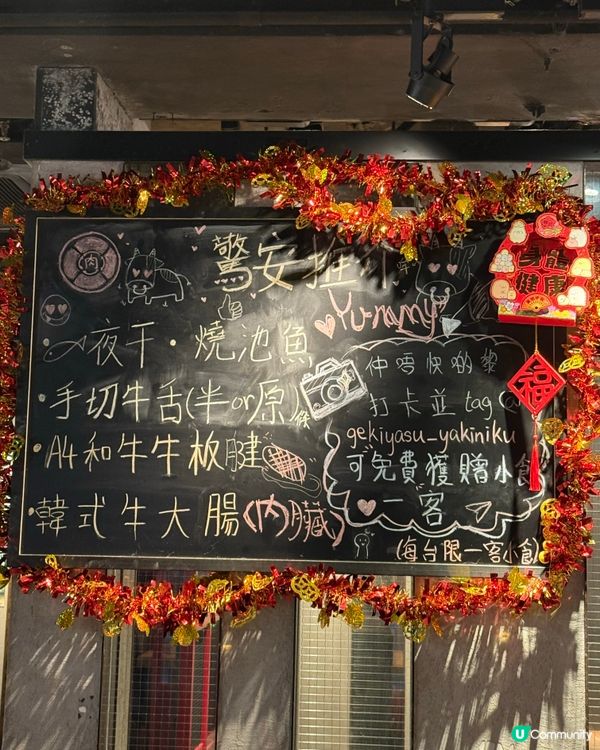 肉
驚安推介
Yummy
一夜干・燒池魚
手切牛舌(半or原)條
A4和牛牛板腱
韓式牛大腸(內臟)
仲唔快啲黎
打卡並tag@
gekiyasu_yakiniku
可免費獲贈小食
一客
(每台限一客小食)
身體
健康
福
U Community